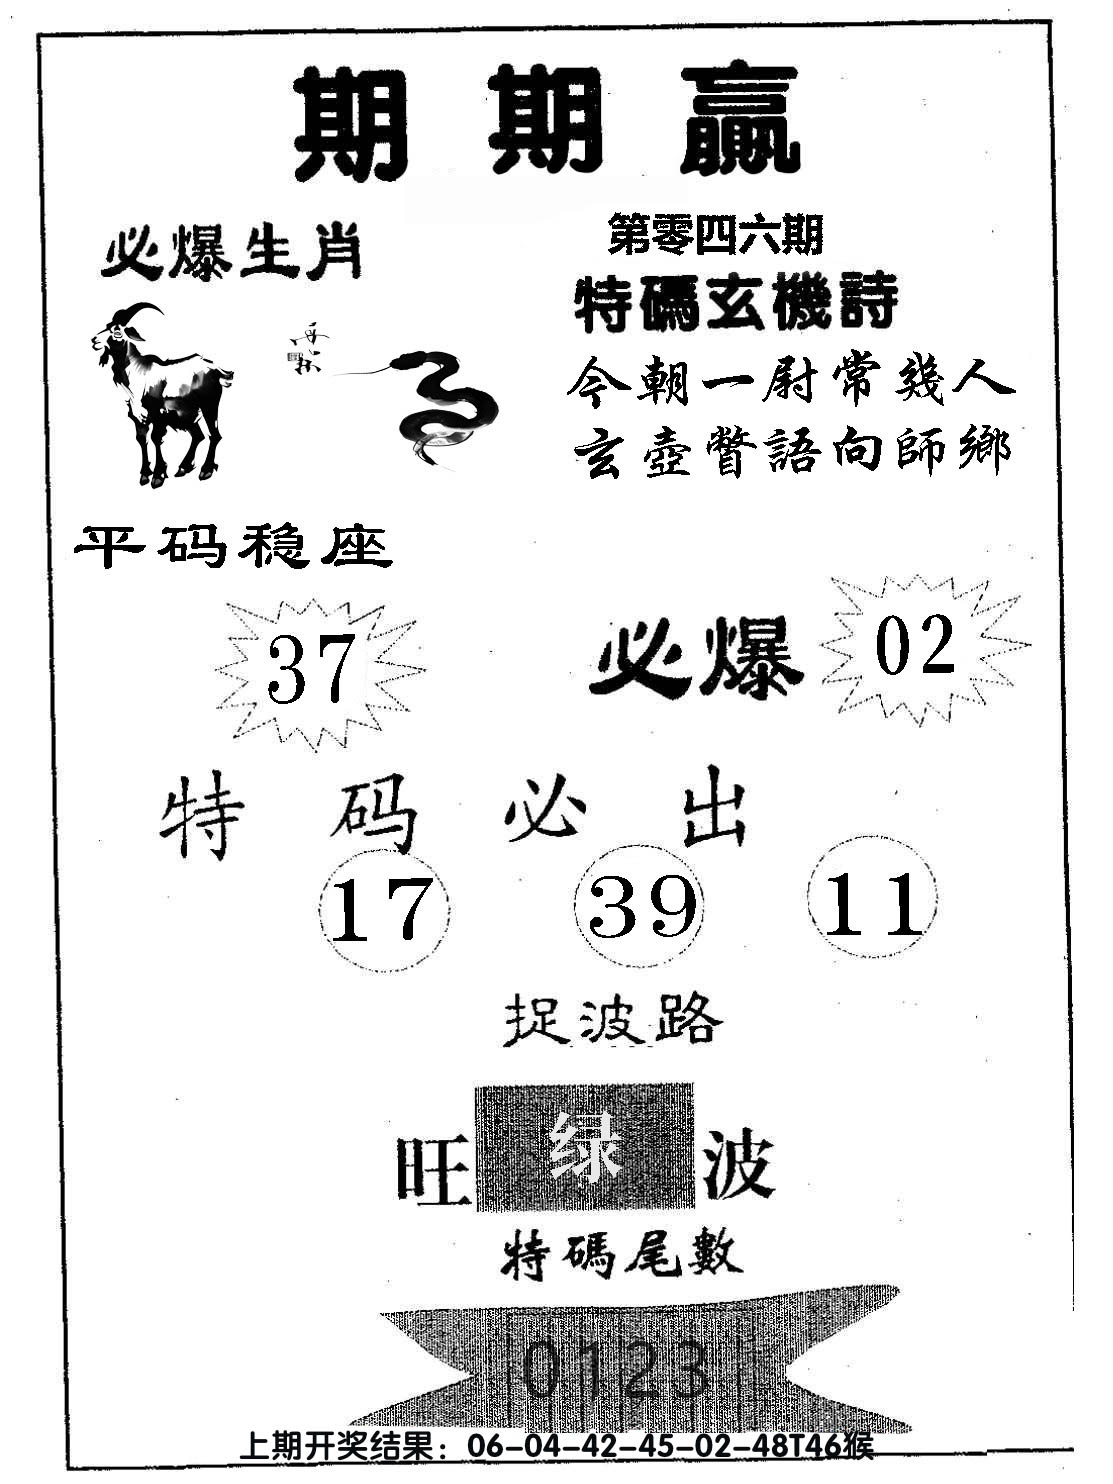 期期赢
必爆生肖
第零四六期
特碼玄機詩
今朝一尉常幾人
玄壺瞥語向師鄉
平码稳座
37
必爆 02
特码必出
17 39 11
捉波路
旺 绿 波
特碼尾數
0123
上期开奖结果：06-04-42-45-02-48T46猴